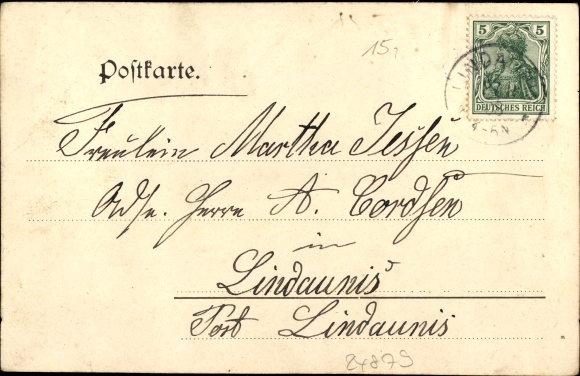 15,
5 5
DEUTSCHES REICH
LINDAU
Postkarte.
Fräulein Martha Jessen
Adr. Herrn A. Cordsen
in
Lindaunis
Post Lindaunis
24879